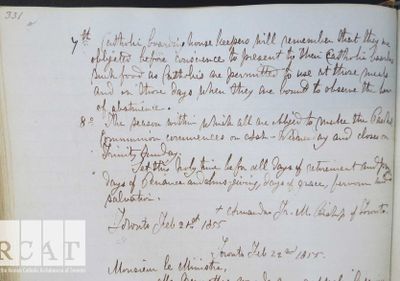 331
7th Catholic boarding house keepers will remember that they are
obliged before conscience to present to their Catholic boarders
such food as Catholics are permitted to use at those meals
and on those days when they are bound to observe the law
of abstinence.
8o The season within which all are obliged to make the Paschal
Communion commences on Ash-Wednesday and closes on
Trinity Sunday.
Let this holy time be for all days of retirement and
days of Penance and alms giving, days of grace, fervour and
salvation.
+ Armandus Fr. M. Bishop of Toronto.
Toronto Feb 21st 1855.
Toronto Feb 22nd 1855.
Monsieur le Ministre,
RCAT
the Roman Catholic Archdiocese of Toronto